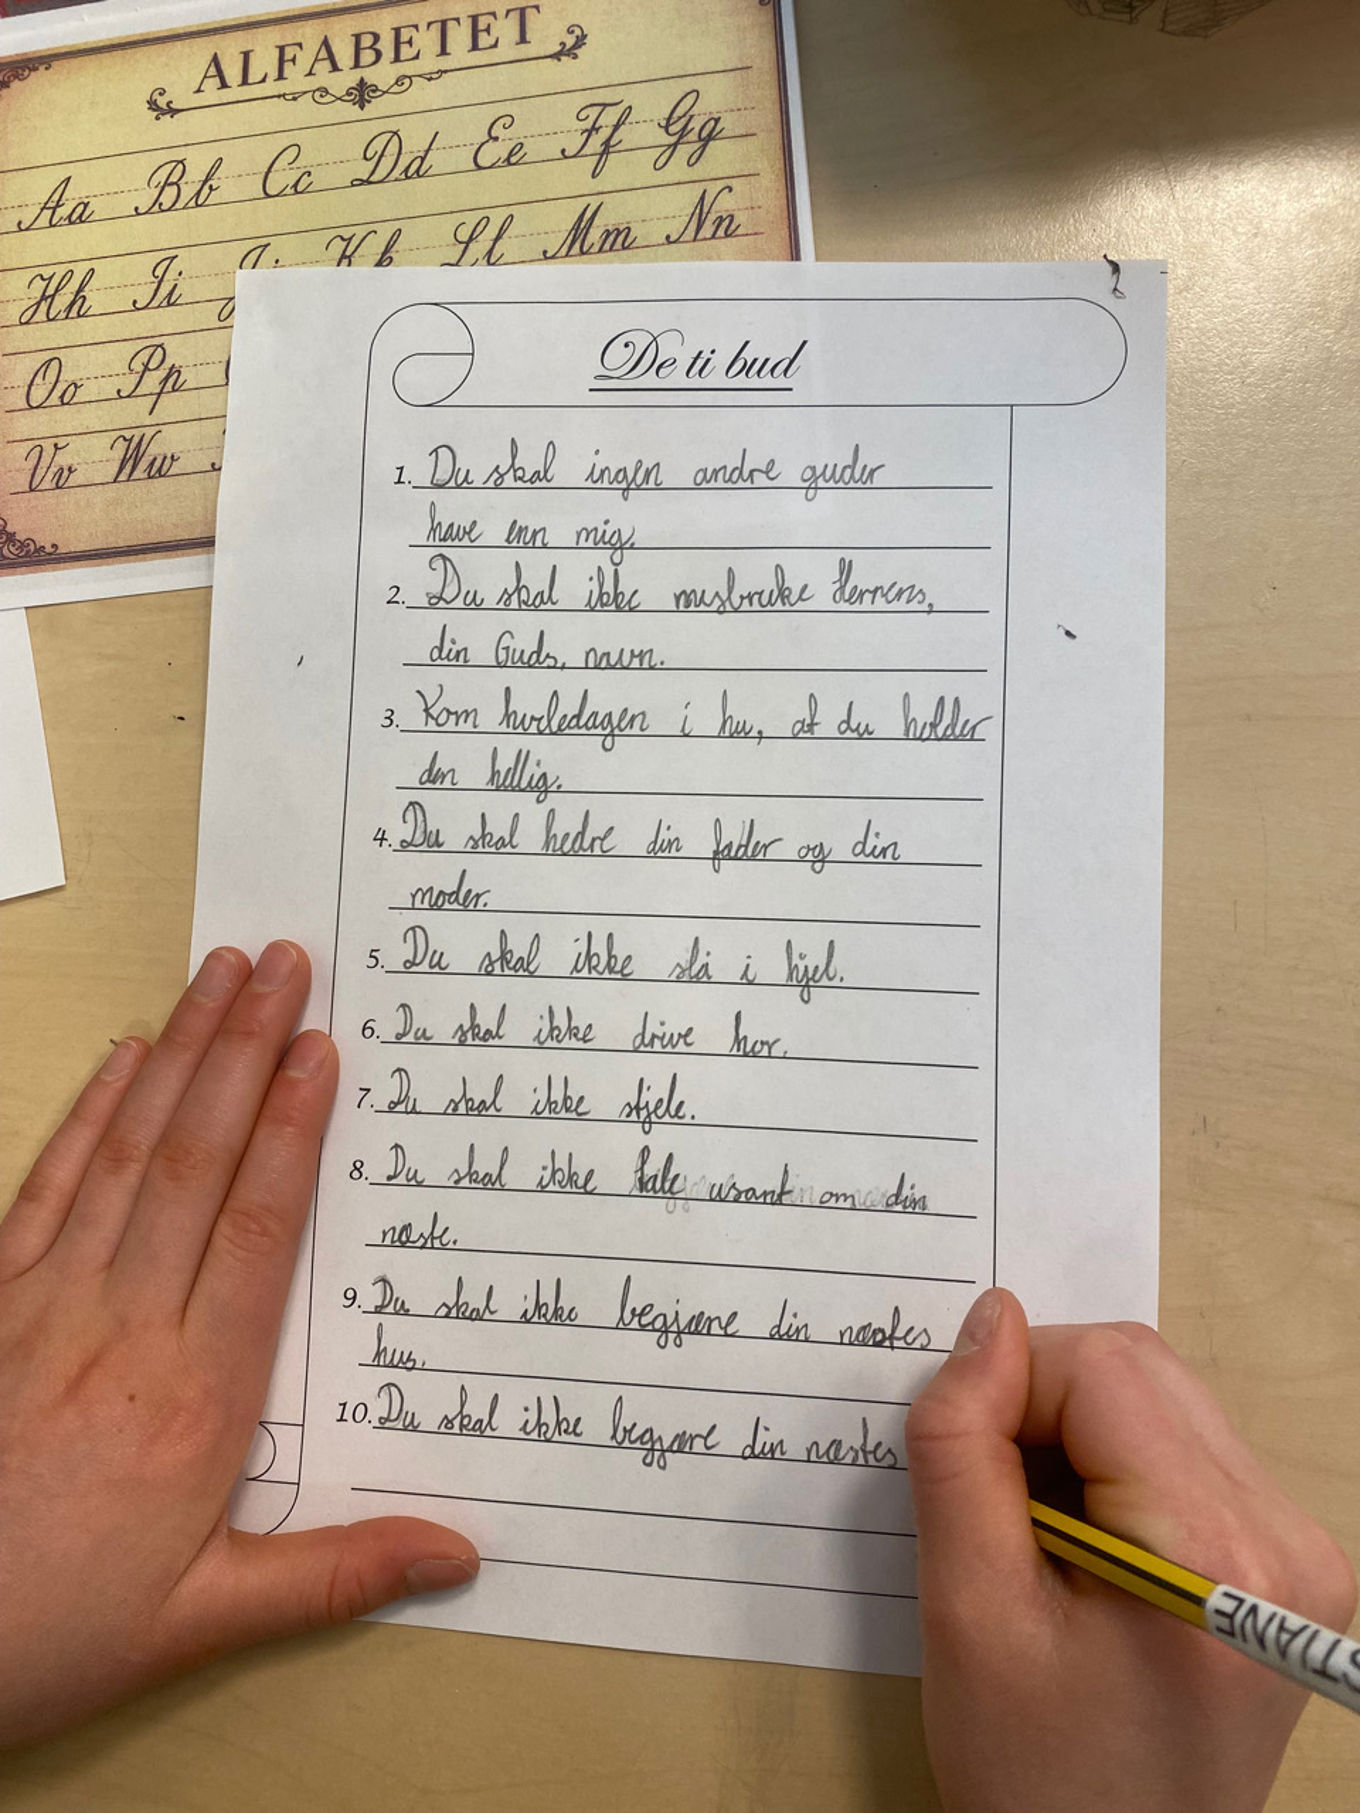 ALFABETET
Aa Bb Cc Dd Ee Ff Gg
Hh Ii Jj Kk Ll Mm Nn
Oo Pp
Vv Ww
De ti bud
1. Du skal ingen andre guder
have enn mig.
2. Du skal ikke misbruke Herrens,
din Guds, navn.
3. Kom hviledagen i hu, at du holder
den hellig.
4. Du skal hedre din fader og din
moder.
5. Du skal ikke slå i hjel.
6. Du skal ikke drive hor.
7. Du skal ikke stjele.
8. Du skal ikke tale usant om din
næste.
9. Du skal ikke begjære din næstes
hus.
10. Du skal ikke begjære din næstes
STIANE